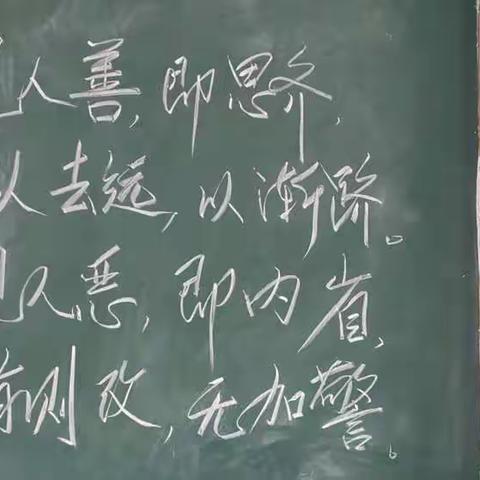 人善,即思齐,
去远,以渐跻。
人恶,即内省,
有则改,无加警。